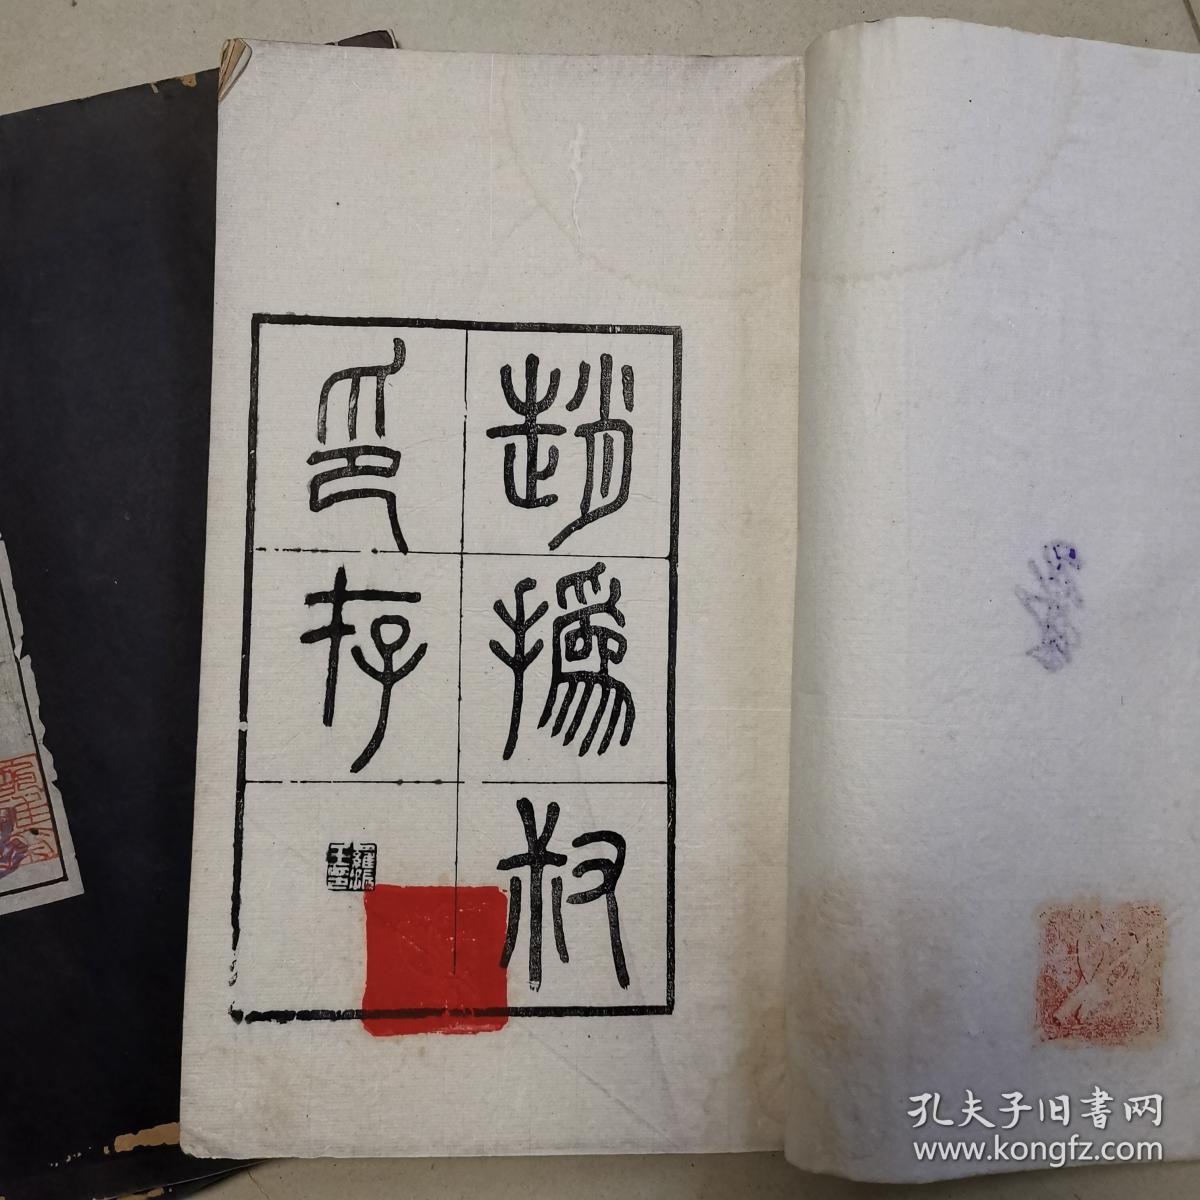 趙撝叔
印存
羅振玉璽
孔夫子旧書网
www.kongfz.com